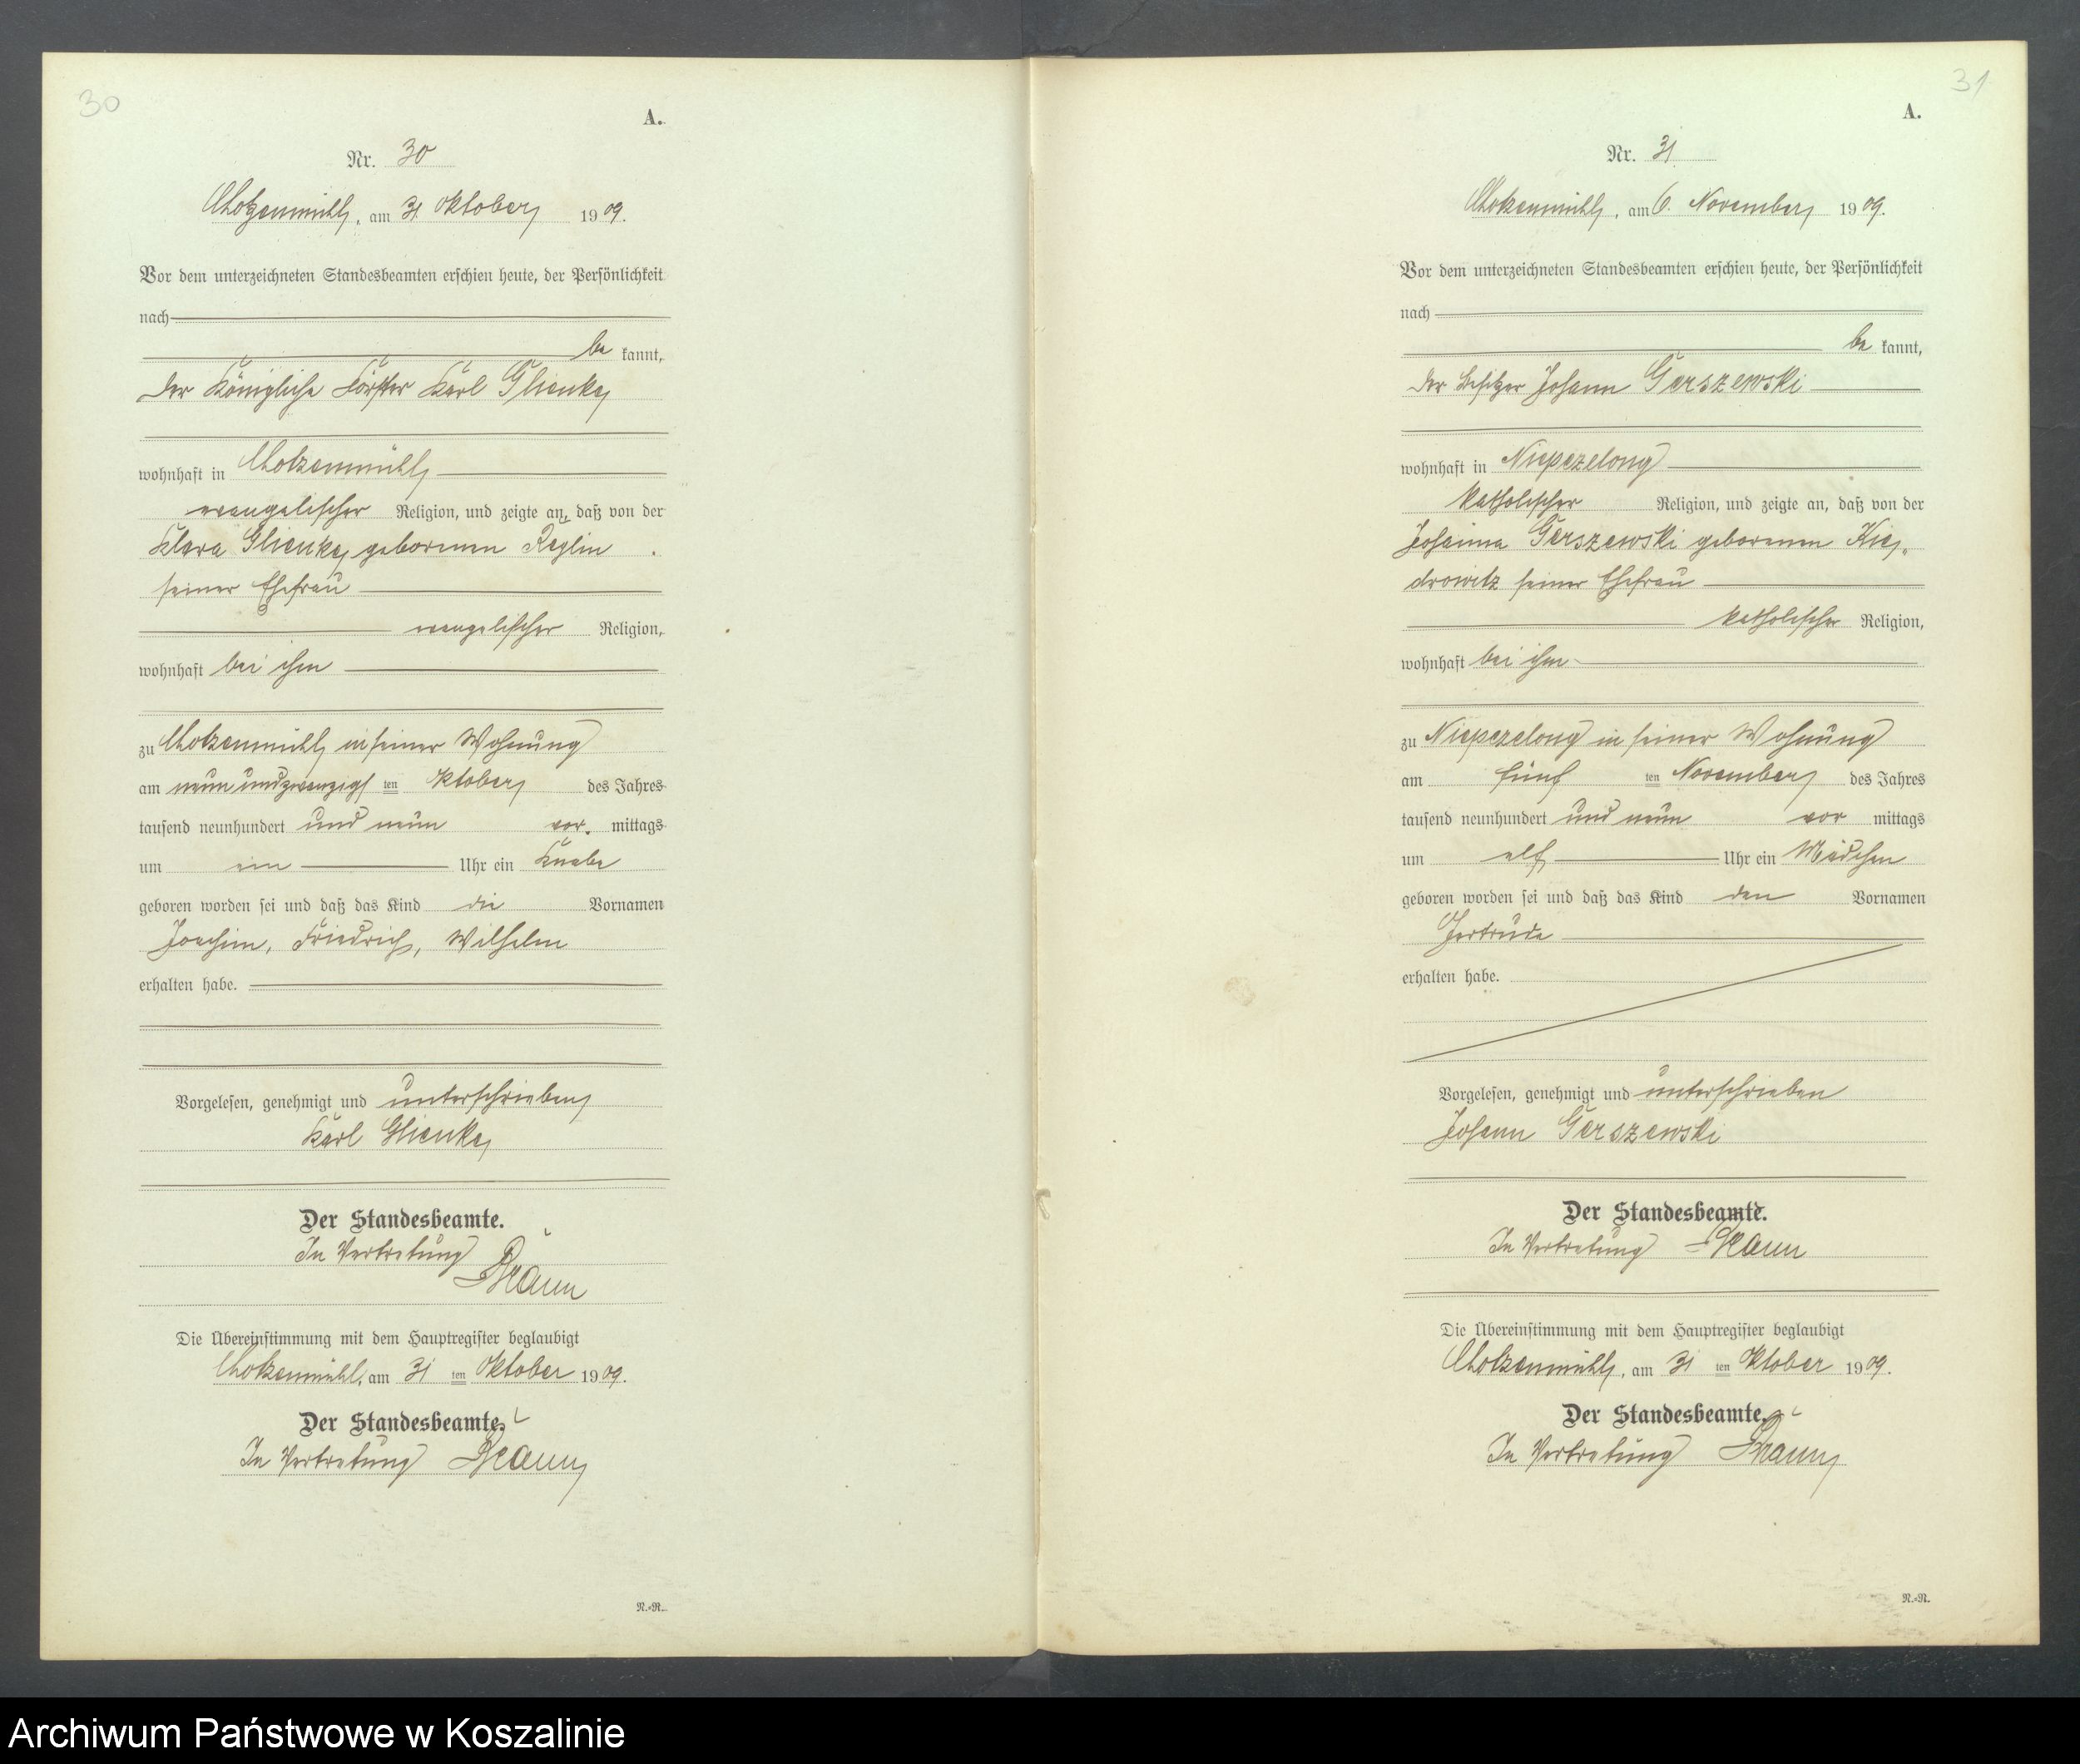 30
A.
Nr. 30
Chotzenmühl, am 31 Oktober 1909.
Vor dem unterzeichneten Standesbeamten erschien heute, der Persönlichkeit
nach
be kannt,
der Königliche Förster Karl Glienke
wohnhaft in Chotzenmühl
evangelischer Religion, und zeigte an, daß von der
Klara Glienke geborenen Reglin
seiner Ehefrau
evangelischer Religion,
wohnhaft bei ihm
zu Chotzenmühl in seiner Wohnung
am neunundzwanzigsten Oktober des Jahres
tausend neunhundert und neun vor mittags
um ein Uhr ein Knabe
geboren worden sei und daß das Kind die Vornamen
Joachim, Friedrich, Wilhelm
erhalten habe.
Vorgelesen, genehmigt und unterschrieben
Karl Glienke
Der Standesbeamte.
In Vertretung
Die Übereinstimmung mit dem Hauptregister beglaubigt
Chotzenmühl, am 31 ten Oktober 1909.
Der Standesbeamte.
In Vertretung
N.=R.
31
A.
Nr. 31
Chotzenmühl, am 6. November 1909.
Vor dem unterzeichneten Standesbeamten erschien heute, der Persönlichkeit
nach
be kannt,
der Besitzer Johann Gerszewski
wohnhaft in Niepczelong
katholischer Religion, und zeigte an, daß von der
Johanna Gerszewski geborenen Kie-
drowitz seiner Ehefrau
katholischer Religion,
wohnhaft bei ihm
zu Niepczelong in seiner Wohnung
am fünf ten November des Jahres
tausend neunhundert und neun vor mittags
um elf Uhr ein Mädchen
geboren worden sei und daß das Kind den Vornamen
Gertrude
erhalten habe.
Vorgelesen, genehmigt und unterschrieben
Johann Gerszewski
Der Standesbeamte.
In Vertretung
Die Übereinstimmung mit dem Hauptregister beglaubigt
Chotzenmühl, am 31 ten Oktober 1909.
Der Standesbeamte.
In Vertretung
N.=R.
Archiwum Państwowe w Koszalinie